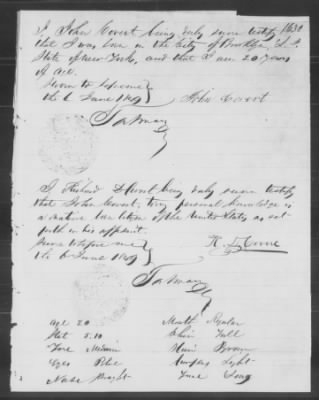 I John Covert being duly sworn testify
that I was born in the City of
State of New York, and that I am 20 years
of age.
Sworn to before me
the 6 June 1849
John Covert
being duly sworn testify
that John Covert, to my personal knowledge is
a native born citizen of the United States, as set
forth in his affidavit.
Sworn to before me
the 6 June 1849
Age 20
Hgt 5.10
Eyes Blue
Nose Straight
Mouth Regular
Chin Full
Hair Brown
Complex Light
Face Long